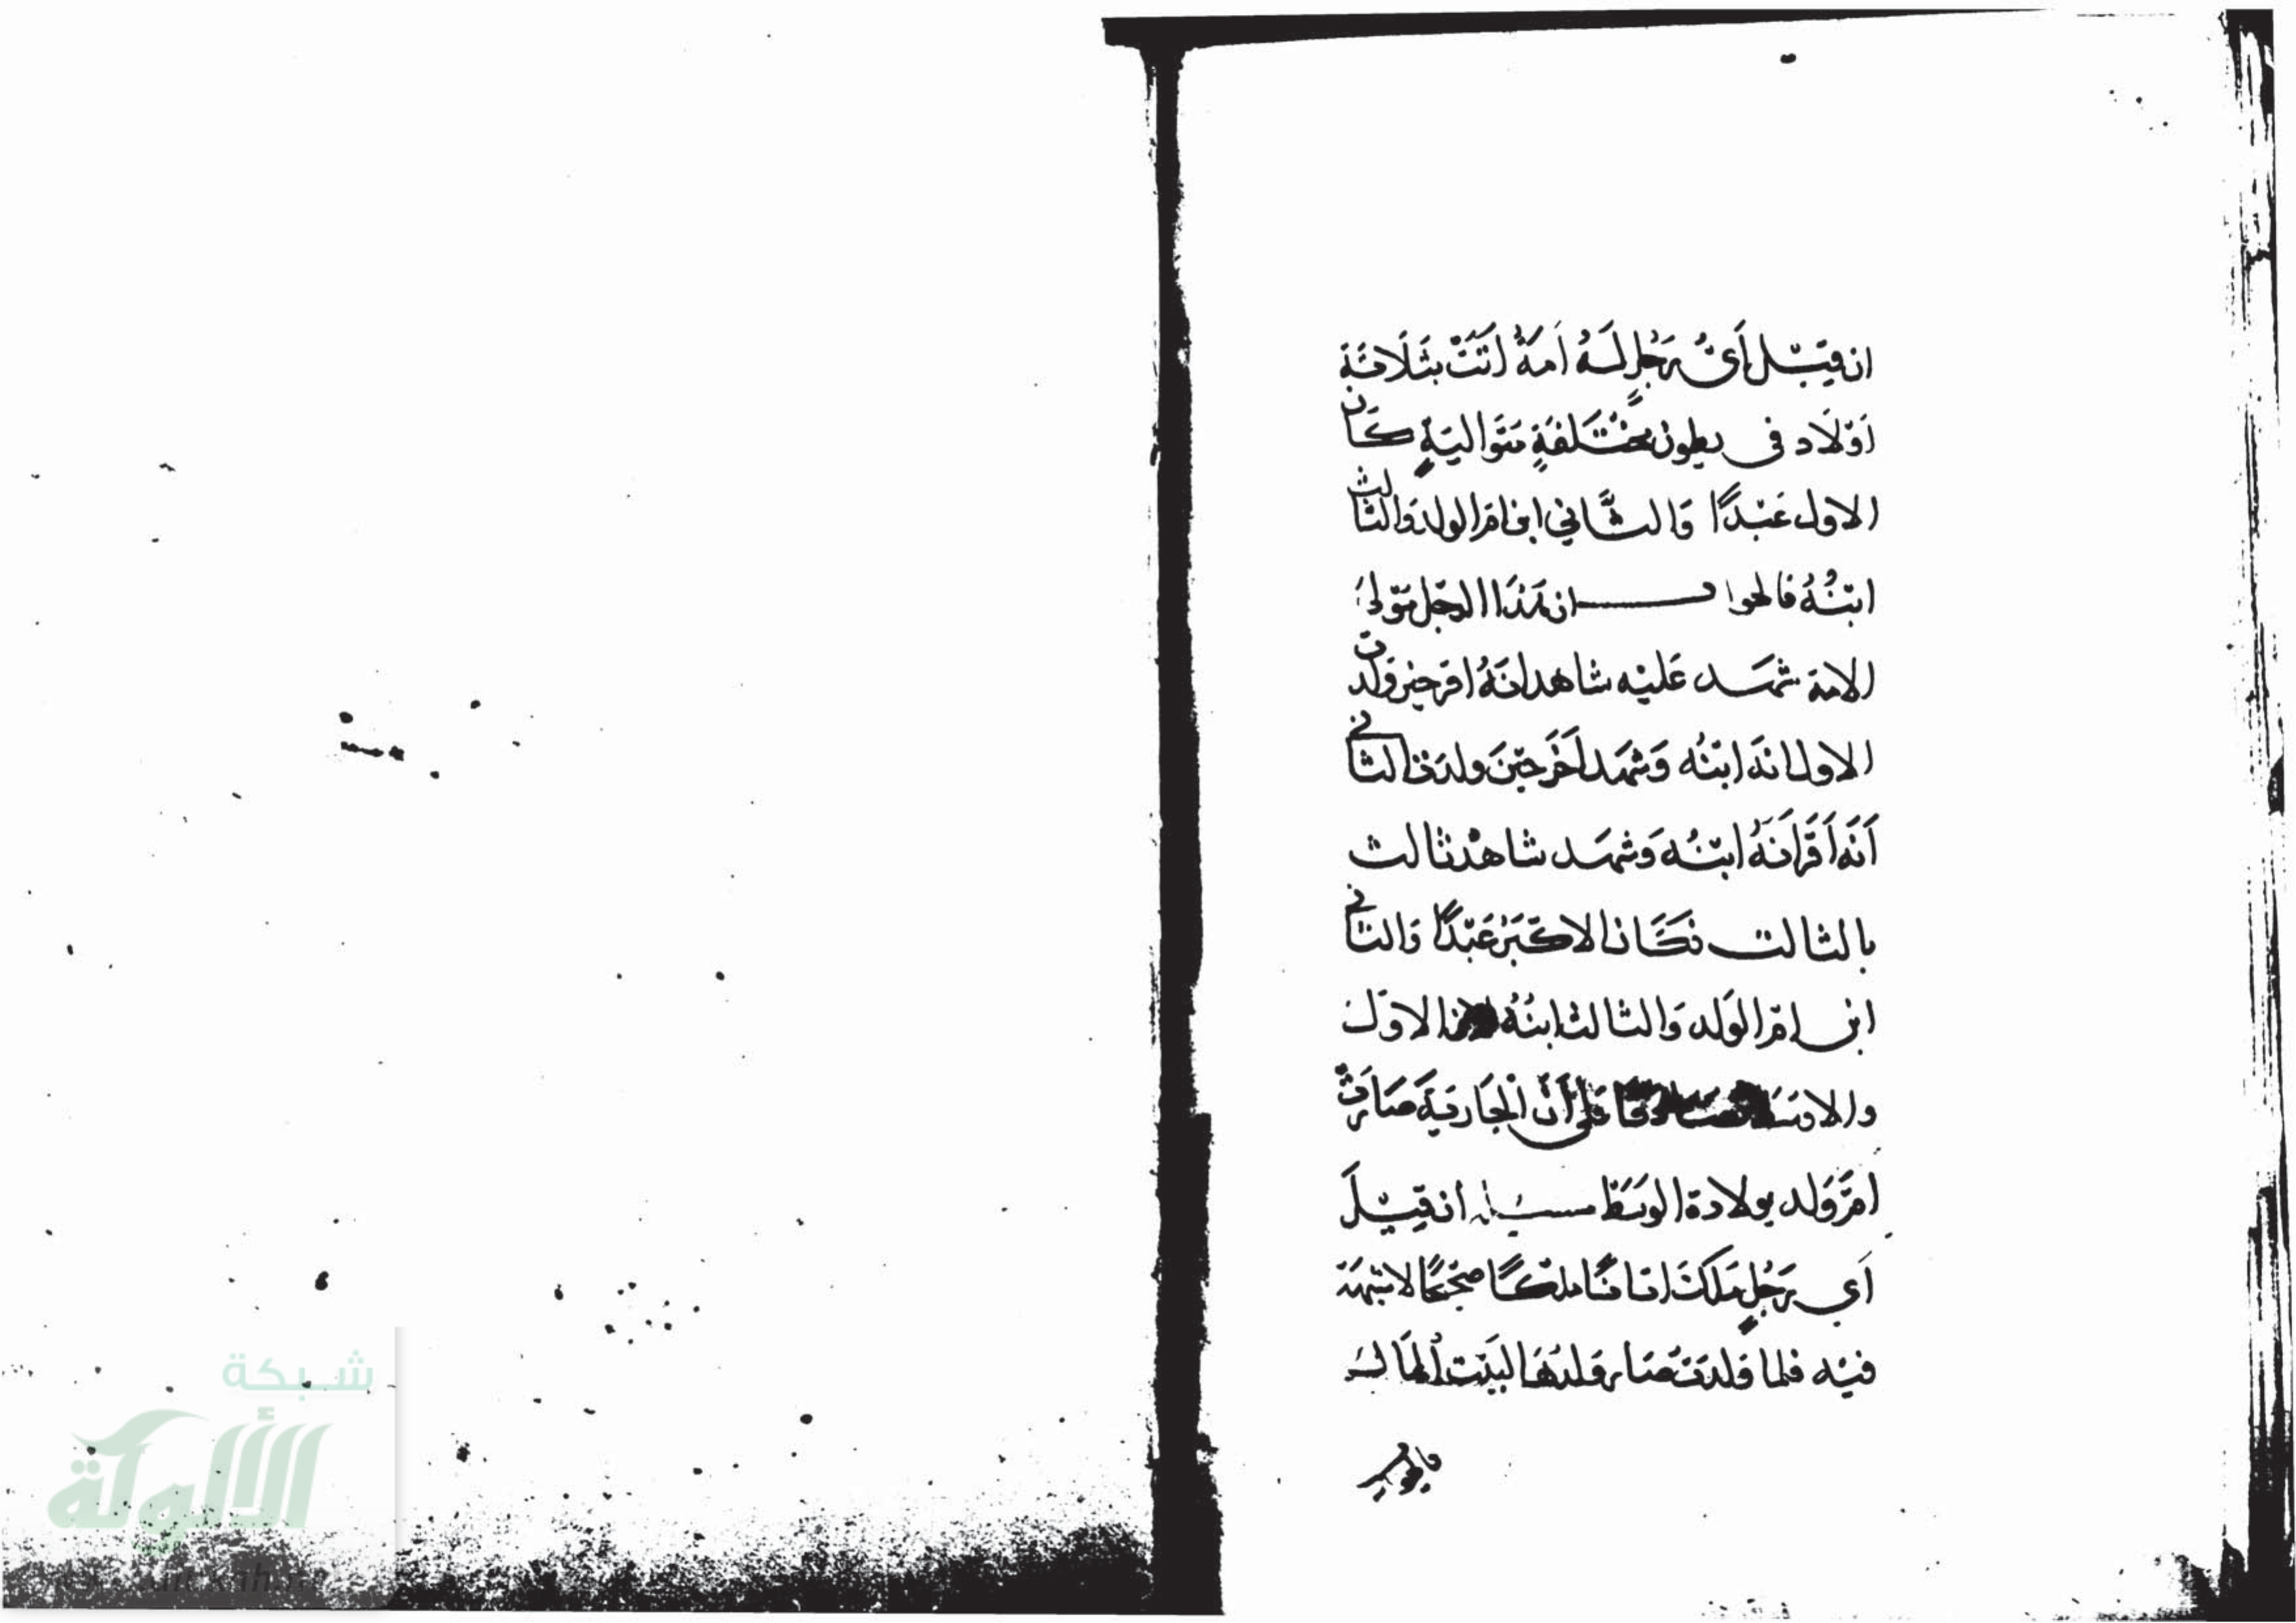 ان قِيْل أَيُّ رَجُلٍ لَهُ أَمَةٌ أَتَتْ بثَلَاثَةِ
أَوْلَاد في بطون مختَلفَةٍ مُتَوَاليَةٍ كَان
الاول عَبْدًا وَالثَّاني ابن ام الولد وَالثالث
ابْنُهُ فالجواب ان هَذَا الرجُل مَوْلى
الامة شهَد عَليْه شاهد انهُ اقر حين وَلدت
الاول انهَ ابنُه وَشهَد آخَر حِيْنَ ولدت الثاني
أَنَّه أَقَرَّ أَنَّهُ ابْنُه وَشهَد شاهدْ ثالث
بالثالث فكَانَ الاكْبَر عَبْدًا وَالثاني
ابن امّ الوَلد وَالثالث ابنُهُ الاوَّل
والا علَى أَنَّ الجَاريَة صَارَتْ
امّ وَلد بولادة الوسَط مسئلة ان قِيْلَ
أَي رَجُلٍ مَلَكَ اتانًا ملْكًا صحيْحًا لا شبهَة
فيْه فلما وَلدَتْ صَار وَلدُهَا لبَيْت المَال
فالجواب
شبكة
الألوكة